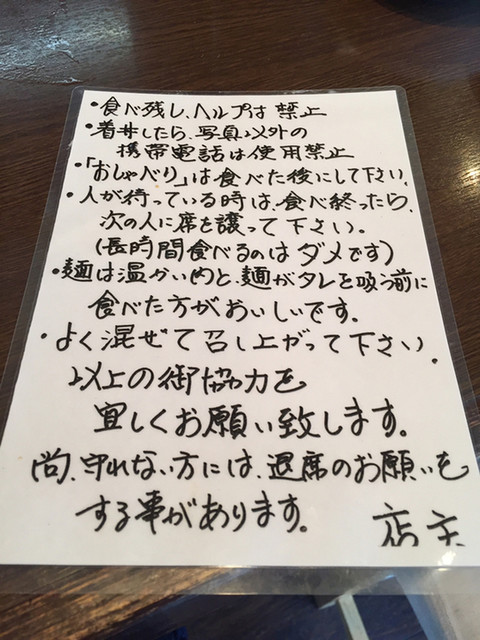 ・食べ残し、ヘルプは禁止
・着丼したら、写真以外の
携帯電話は使用禁止
・「おしゃべり」は食べた後にして下さい。
・人が待っている時は、食べ終ったら、
次の人に席を譲って下さい。
(長時間食べるのはダメです)
・麺は温かい内と、麺がタレを吸う前に
食べた方がおいしいです。
・よく混ぜて召し上がって下さい。
以上の御協力を
宜しくお願い致します。
尚、守れない方には、退席のお願いを
する事があります。
店主